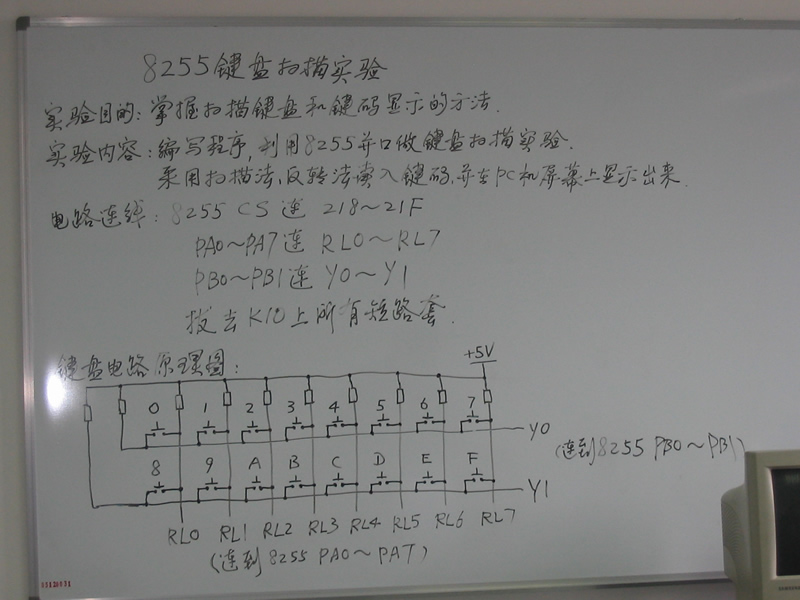 8255键盘扫描实验
实验目的：掌握扫描键盘和键码显示的方法.
实验内容：编写程序,利用8255并口做键盘扫描实验.
采用扫描法,反转法读入键码,并在PC机屏幕上显示出来.
电路连线：8255 CS 连 218～21F
PA0～PA7连 RL0～RL7
PB0～PB1连 Y0～Y1
拔去K10上所有短路套.
键盘电路原理图：
+5V
0 1 2 3 4 5 6 7
Y0
(连到8255 PB0～PB1)
8 9 A B C D E F
Y1
RL0 RL1 RL2 RL3 RL4 RL5 RL6 RL7
(连到8255 PA0～PA7)